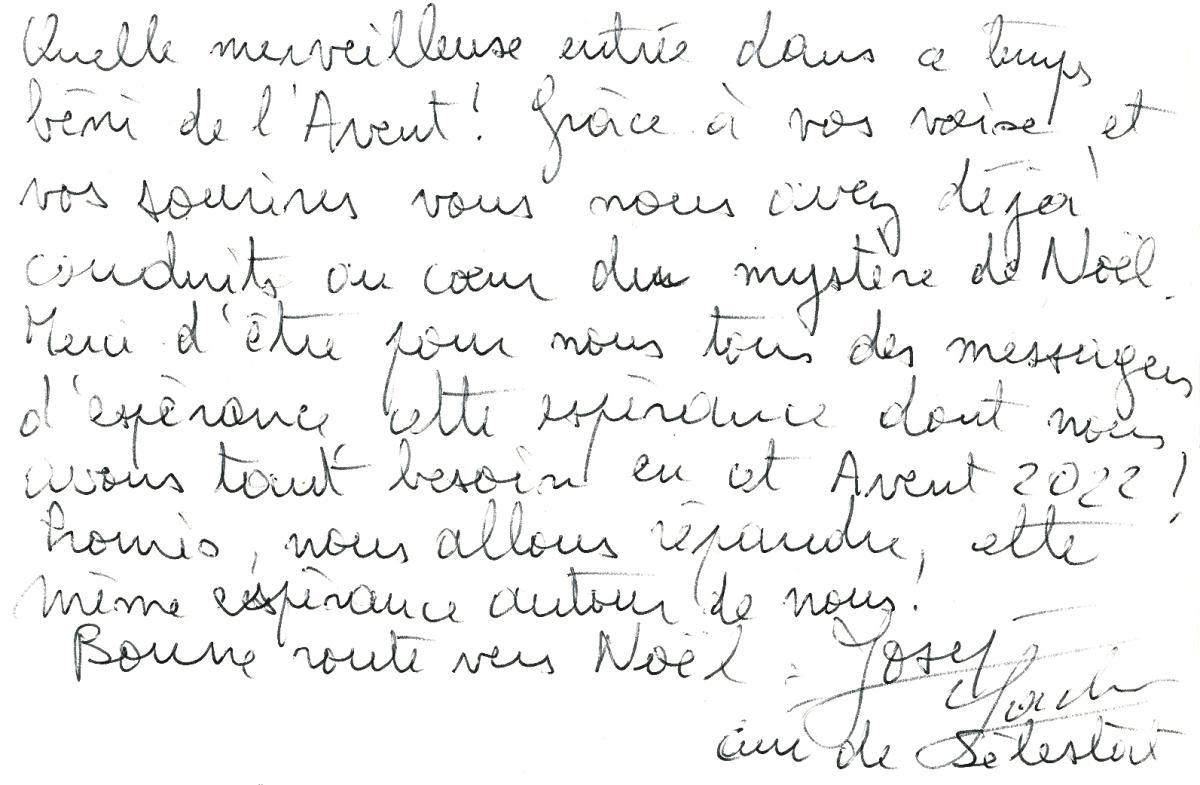 Quelle merveilleuse entrée dans ce temps
béni de l'Avent! Grâce à vos voix et
vos sourires vous nous avez déjà
conduits au cœur du mystère de Noël.
Merci d'être pour nous tous des messagers
d'espérance, cette espérance dont nous
avons tant besoin en cet Avent 2022!
Promis, nous allons répandre, cette
même espérance autour de nous!
Bonne route vers Noël. Josef
curé de Sélestat